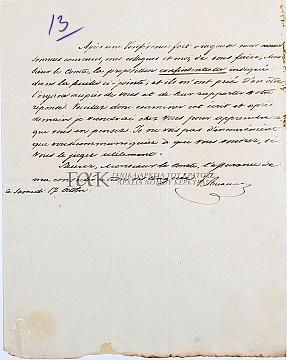 13
Après une Conférence fort orageuse nous
sommes convenus, mes collègues et moi, de vous faire, Mon
sieur le Comte, la proposition confidentielle indiquée
dans la feuille ci-jointe, et ils m'ont prié d'en être
l'organe auprès de vous et de leur rapporter votre
réponse. Veuillez donc examiner cet écrit et après
demain je viendrai chez vous pour apprendre ce
que vous en pensez. Je ne vois pas d'inconvénient
que vous à ce que vous
vous le jugez utilement.
Agréez, Monsieur le Comte, l'assurance de
ma considération
ΓΕΝΙΚΑ ΑΡΧΕΙΑ ΤΟΥ ΚΡΑΤΟΥΣ
ΑΡΧΕΙΑ ΝΟΜΟΥ ΚΕΡΚΥΡΑΣ
ce Samedi 12